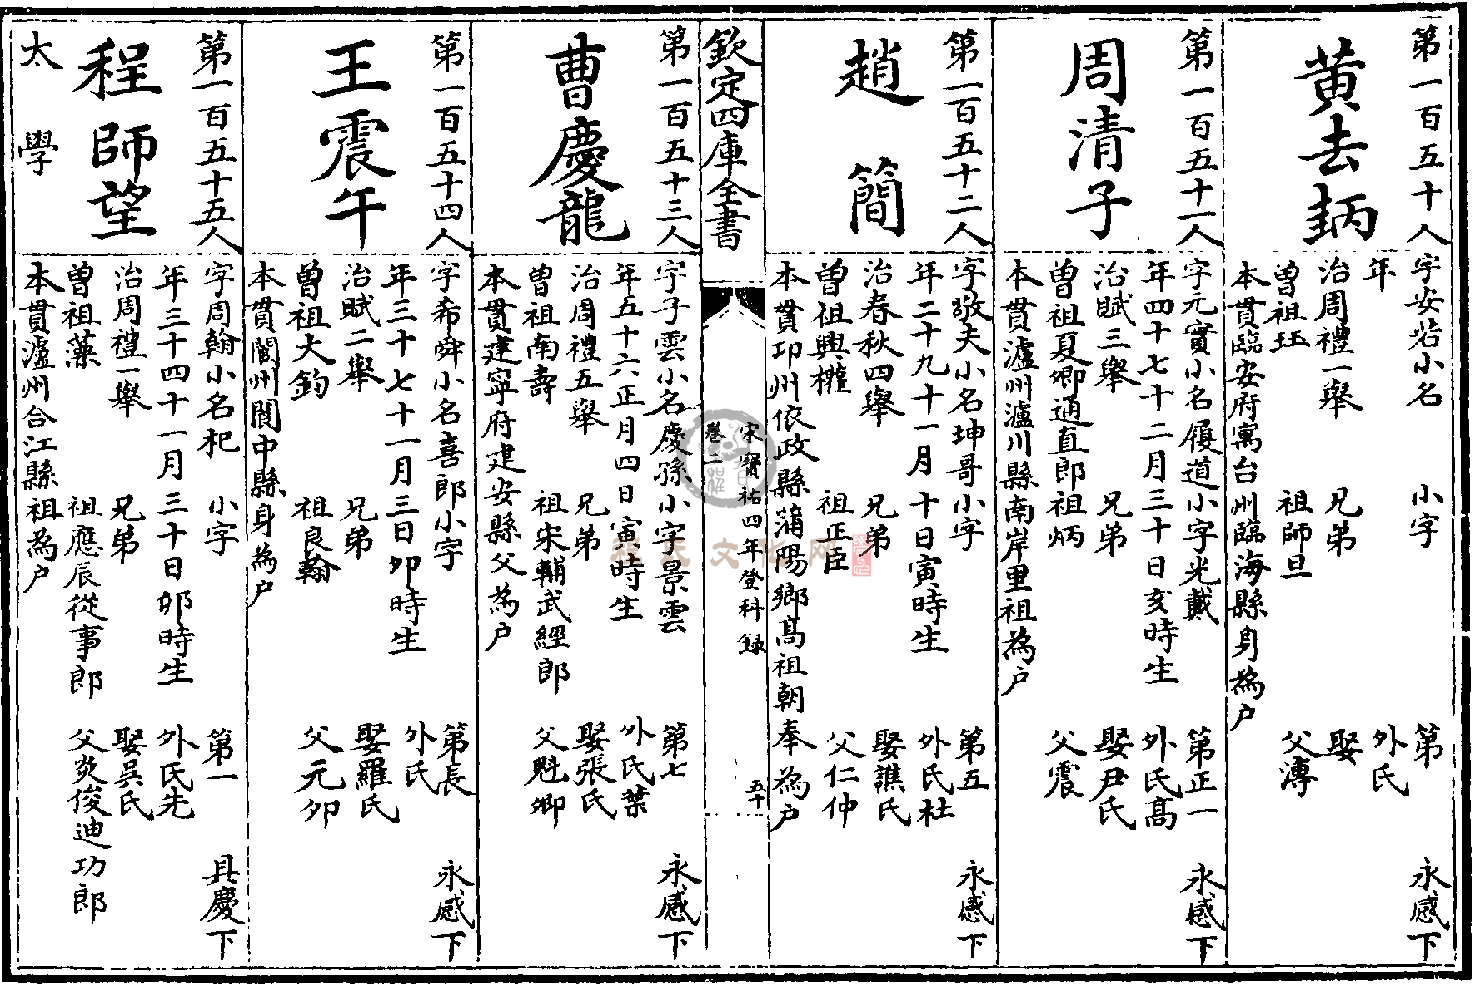 第一百五十人
黄去𤬪
字安若小名 小字 第 永感下
年 外氏
治周禮一舉 兄弟 娶
曽祖珏 祖師旦 父溥
本貫臨安府寓台州臨海縣身為户
第一百五十一人
周清子
字元實小名履道小字光戴 第正一 永感下
年四十七十二月三十日亥時生 外氏髙
治賦三舉 兄弟 娶尹氏
曽祖夏卿通直郎 祖炳 父震
本貫瀘州瀘川縣南岸里祖為户
第一百五十二人
趙簡
字敬夫小名坤哥小字 第五 永感下
年二十九十一月十日寅時生 外氏杜
治春秋四舉 兄弟 娶譙氏
曽祖興權 祖正臣 父仁仲
本貫邛州依政縣蒲陽鄉髙祖朝奉為户
欽定四庫全書
宋寶祐四年登科録
卷二
五十
第一百五十三人
曹慶龍
字子雲小名慶孫小字景雲 第七 永感下
年五十六正月四日寅時生 外氏葉
治周禮五舉 兄弟 娶張氏
曽祖南壽 祖宋輔武經郎 父魁卿
本貫建寧府建安縣父為户
第一百五十四人
王震午
字希舜小名喜郎小字 第長 永感下
年三十七十一月三日卯時生 外氏
治賦二舉 兄弟 娶羅氏
曽祖大鈞 祖良翰 父元卯
本貫閬州閬中縣身為户
第一百五十五人
程師望
太學
字周翰小名杞 小字 第一 具慶下
年三十四十一月三十日卯時生 外氏先
治周禮一舉 兄弟 娶吳氏
曽祖藻 祖應辰從事郎 父炎俊迪功郎
本貫瀘州合江縣祖為户